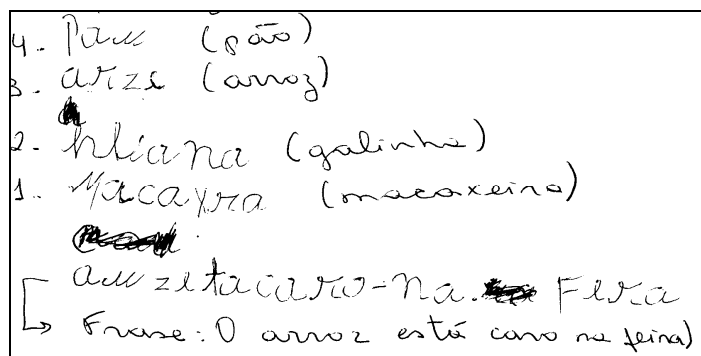 4. Pam (pão)
3. arzi (arroz)
2. hliana (galinha)
1. Macayra (macaxeira)
zetacaro-na Fera
Frase: O arroz está caro na feira)